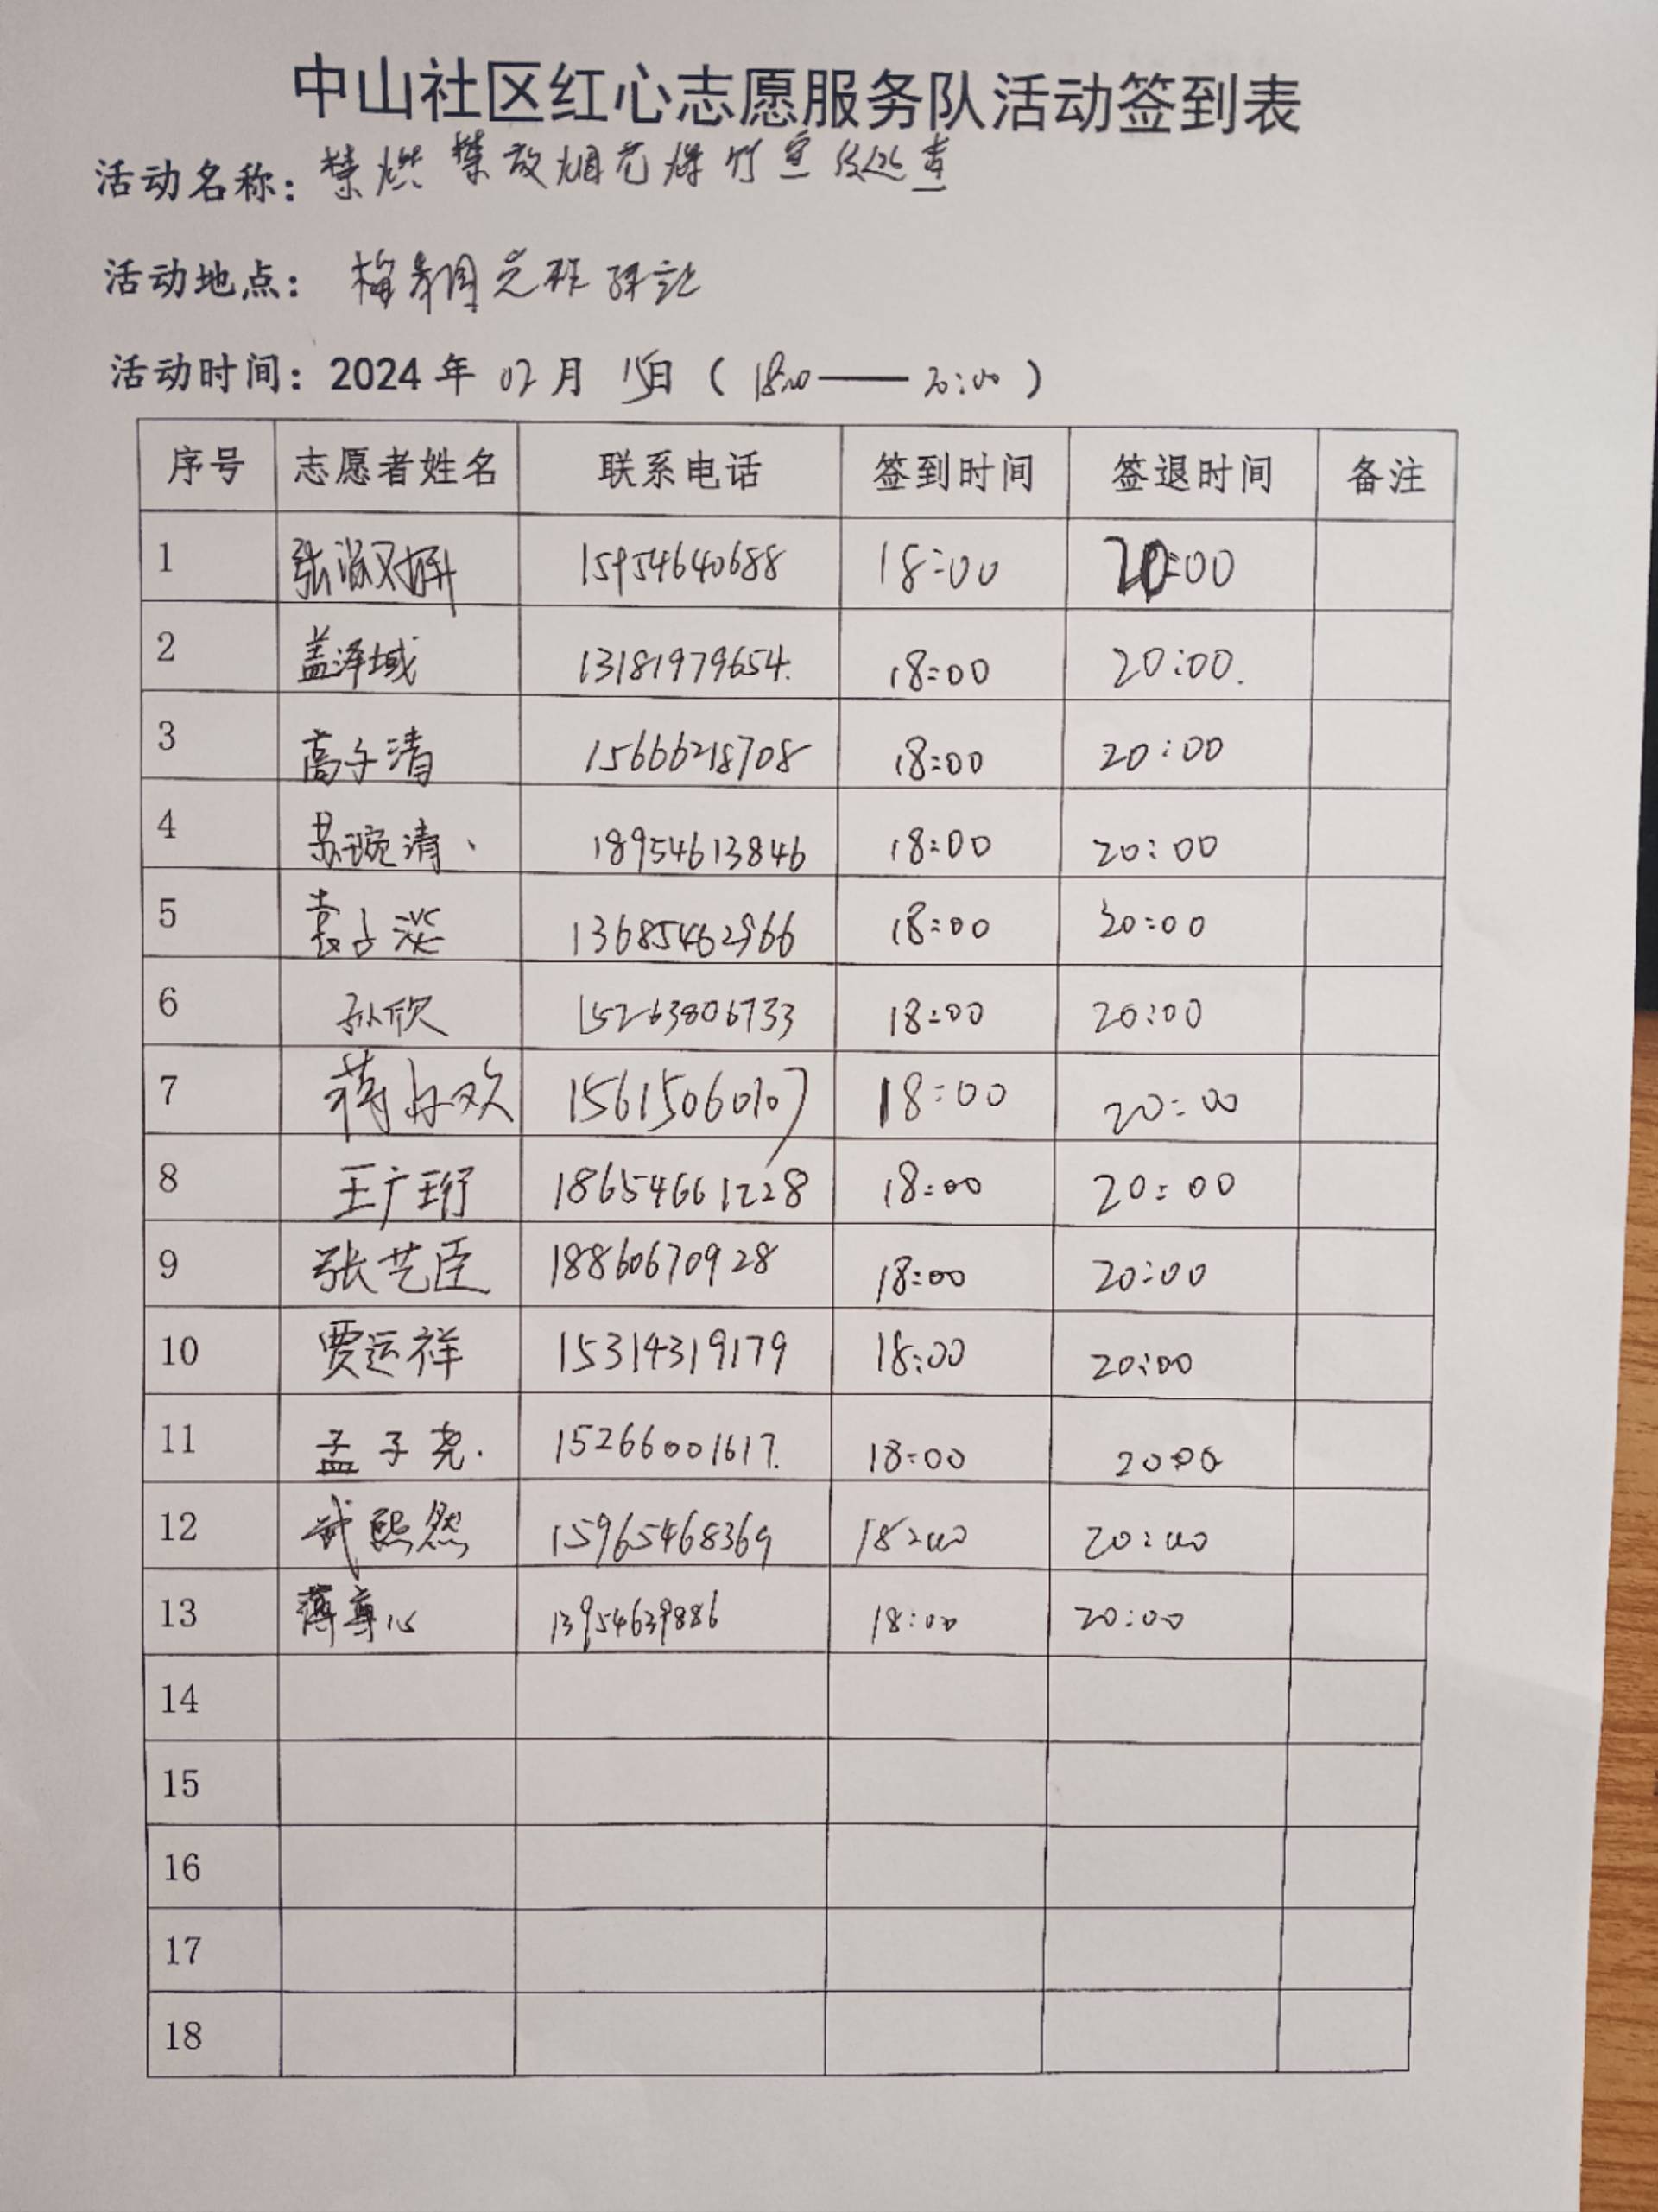 中山社区红心志愿服务队活动签到表
活动名称：禁燃禁放烟花爆竹宣传巡查
活动地点：
活动时间：2024年02月15日（18:00——20:00）
序号 志愿者姓名 联系电话 签到时间 签退时间 备注
1 张 15954640688 18:00 20:00
2 盖泽域 13181979654. 18:00 20:00.
3 高子清 15666218708 18:00 20:00
4 苏琬清 18954613846 18:00 20:00
5 袁子淞 13685462966 18:00 20:00
6 孙欣 15263806733 18:00 20:00
7 蒋欢 15615060107 18:00 20:00
8 王广珩 18654661228 18:00 20:00
9 张艺臣 18860670928 18:00 20:00
10 贾运祥 15314319179 18:00 20:00
11 孟子尧. 15266001617. 18:00 20:00
12 武熙然 15965468369 18:00 20:00
13 薄尊心 13954639886 18:00 20:00
14
15
16
17
18